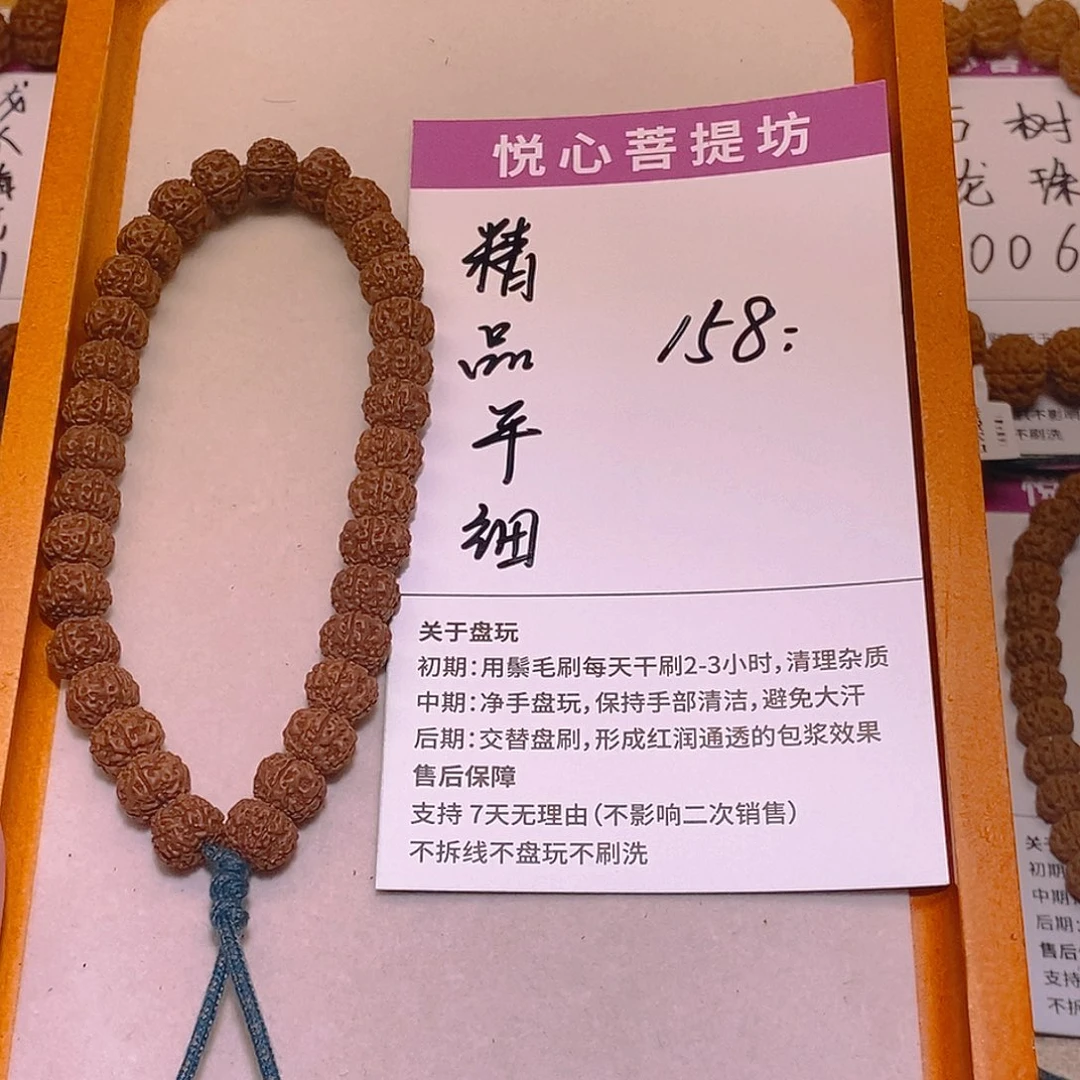 悦心菩提坊
精品平细
158:
关于盘玩
初期:用鬃毛刷每天干刷2-3小时,清理杂质
中期:净手盘玩,保持手部清洁,避免大汗
后期:交替盘刷,形成红润通透的包浆效果
售后保障
支持 7天无理由(不影响二次销售)
不拆线不盘玩不刷洗
树
龙珠
006
不刷洗
悦
关于
初期
中期
后期:
售后
支持
不拆